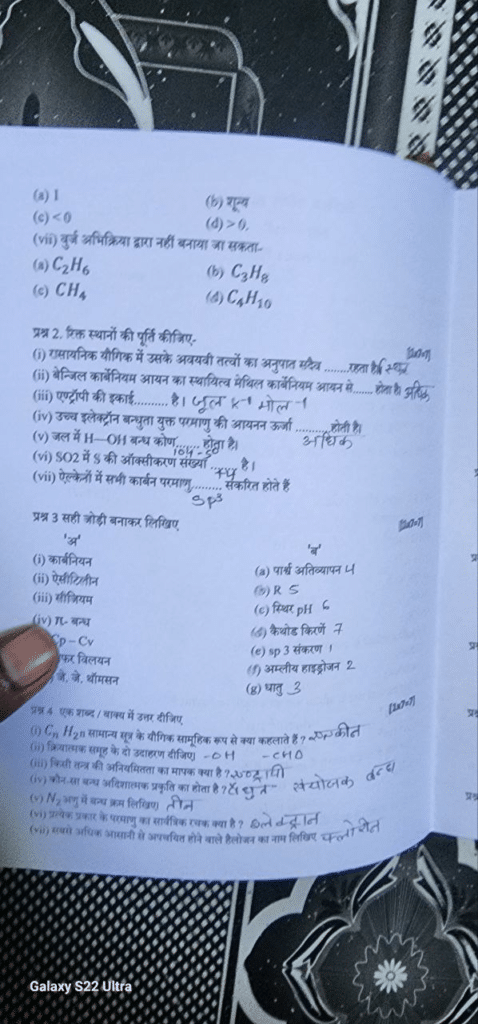 (a) 1 (b) शून्य
(c) <0 (d) >0.
(vii) वुर्ज अभिक्रिया द्वारा नहीं बनाया जा सकता-
(a) C₂H₆ (b) C₃H₈
(c) CH₄ (d) C₄H₁₀
प्रश्न 2. रिक्त स्थानों की पूर्ति कीजिए-
(i) रासायनिक यौगिक में उसके अवयवी तत्वों का अनुपात सदैव ........रहता है। स्थिर
(ii) बेन्जिल कार्बेनियम आयन का स्थायित्व मेथिल कार्बेनियम आयन से...... होता है। अधिक
(iii) एण्ट्रॉपी की इकाई.......... है। जूल K⁻¹ मोल⁻¹
(iv) उच्च इलेक्ट्रॉन बन्धुता युक्त परमाणु की आयनन ऊर्जा ..........होती है।
अधिक
(v) जल में H—OH बन्ध कोण....... होता है।
(vi) SO2 में S की ऑक्सीकरण संख्या ........ है।
+4
(vii) ऐल्केनों में सभी कार्बन परमाणु......... संकरित होते हैं
sp³
प्रश्न 3 सही जोड़ी बनाकर लिखिए
'अ' 'ब'
(i) कार्बनियन (a) पार्श्व अतिव्यापन 4
(ii) ऐसीटिलीन (b) R 5
(iii) सीजियम (c) स्थिर pH 6
(iv) π- बन्ध (d) कैथोड किरणें 7
Cp – Cv (e) sp 3 संकरण 1
फर विलयन (f) अम्लीय हाइड्रोजन 2
जे. जे. थॉमसन (g) धातु 3
प्रश्न 4 एक शब्द / वाक्य में उत्तर दीजिए
(i) Cₙ H₂ₙ सामान्य सूत्र के यौगिक सामूहिक रूप से क्या कहलाते हैं ?
(ii) क्रियात्मक समूह के दो उदाहरण दीजिए। -OH -CHO
(iii) किसी तन्त्र की अनियमितता का मापक क्या है ?
(iv) कौन-सा बन्ध अदिशात्मक प्रकृति का होता है ? संयोजक बन्ध
(v) N₂ अणु में बन्ध क्रम लिखिए। तीन
(vi) प्रत्येक प्रकार के परमाणु का सार्वत्रिक रचक क्या है ?
(vii) सबसे अधिक आसानी से अपचयित होने वाले हैलोजन का नाम लिखिए
Galaxy S22 Ultra